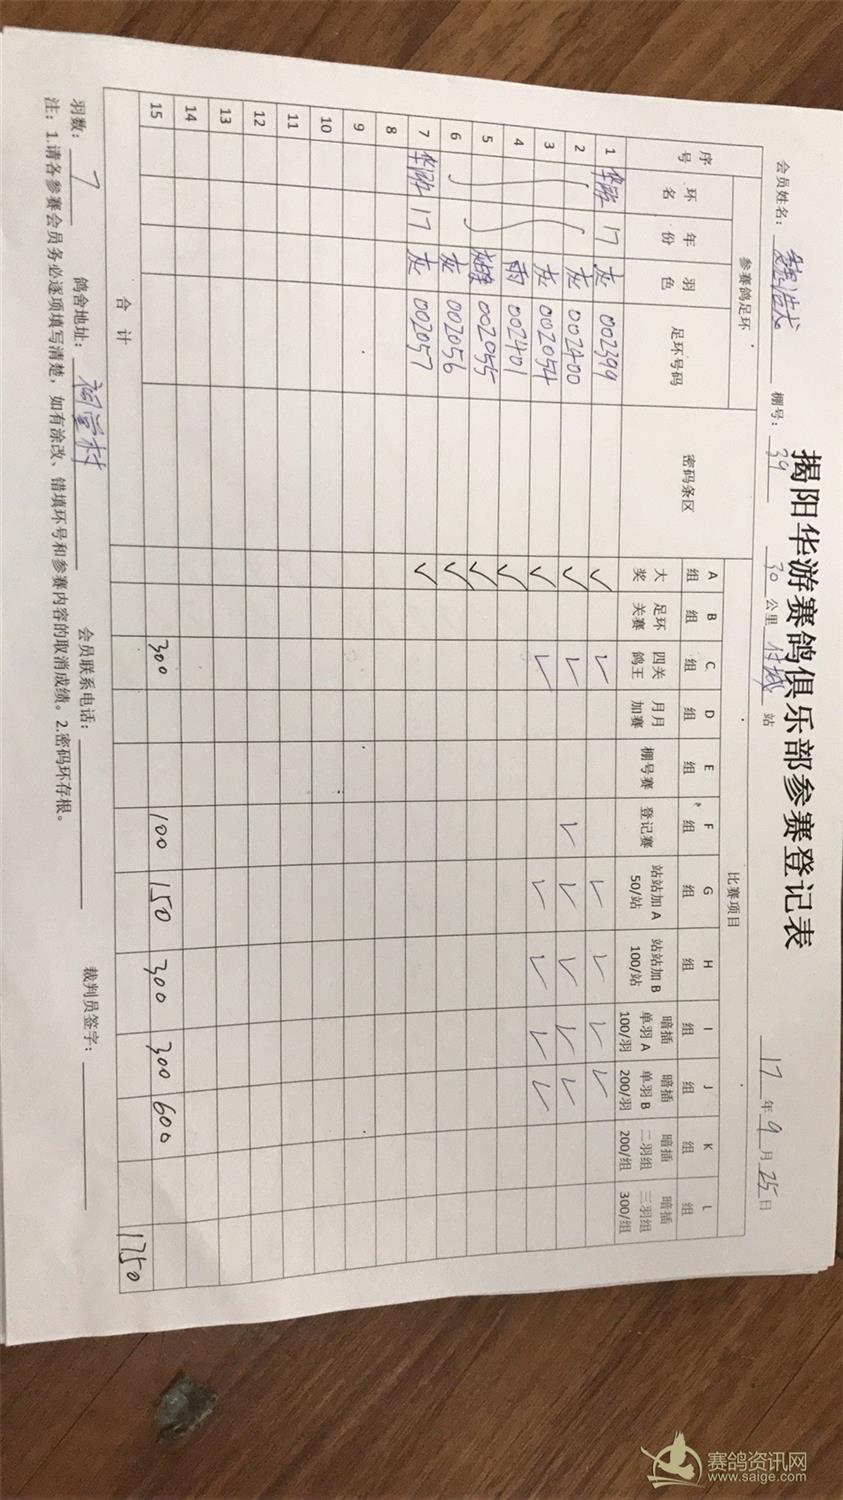 揭阳华游赛鸽俱乐部参赛登记表
会员姓名： 棚号：39 30公里 站 17年9月25日
参赛鸽足环 密码条区 比赛项目
序号 环名 年份 羽色 足环号码 A组 B组 C组 D组 E组 F组 G组 H组 I组 J组 K组 L组
大奖 足环关赛 四关鸽王 月月加赛 棚号赛 登记赛 站站加A 50/站 站站加B 100/站 暗插单羽A 100/羽 暗插单羽B 200/羽 暗插二羽组 200/组 暗插三羽组 300/组
1 华游 17 灰 002399 ✓ ✓ ✓ ✓ ✓ ✓
2 灰 002400 ✓ ✓ ✓ ✓ ✓ ✓ ✓
3 灰 002054 ✓ ✓ ✓ ✓ ✓ ✓
4 雨 002401 ✓
5 002055 ✓
6 灰 002056 ✓
7 华游 17 灰 002057 ✓
8
9
10
11
12
13
14
15 300 100 150 300 300 600
合计 1750
羽数：7 鸽舍地址：祠堂村 会员联系电话： 裁判员签字：
注：1.请各参赛会员务必逐项填写清楚，如有涂改、错填环号和参赛内容的取消成绩。2.密码环存根。
赛鸽资讯网
www.saige.com